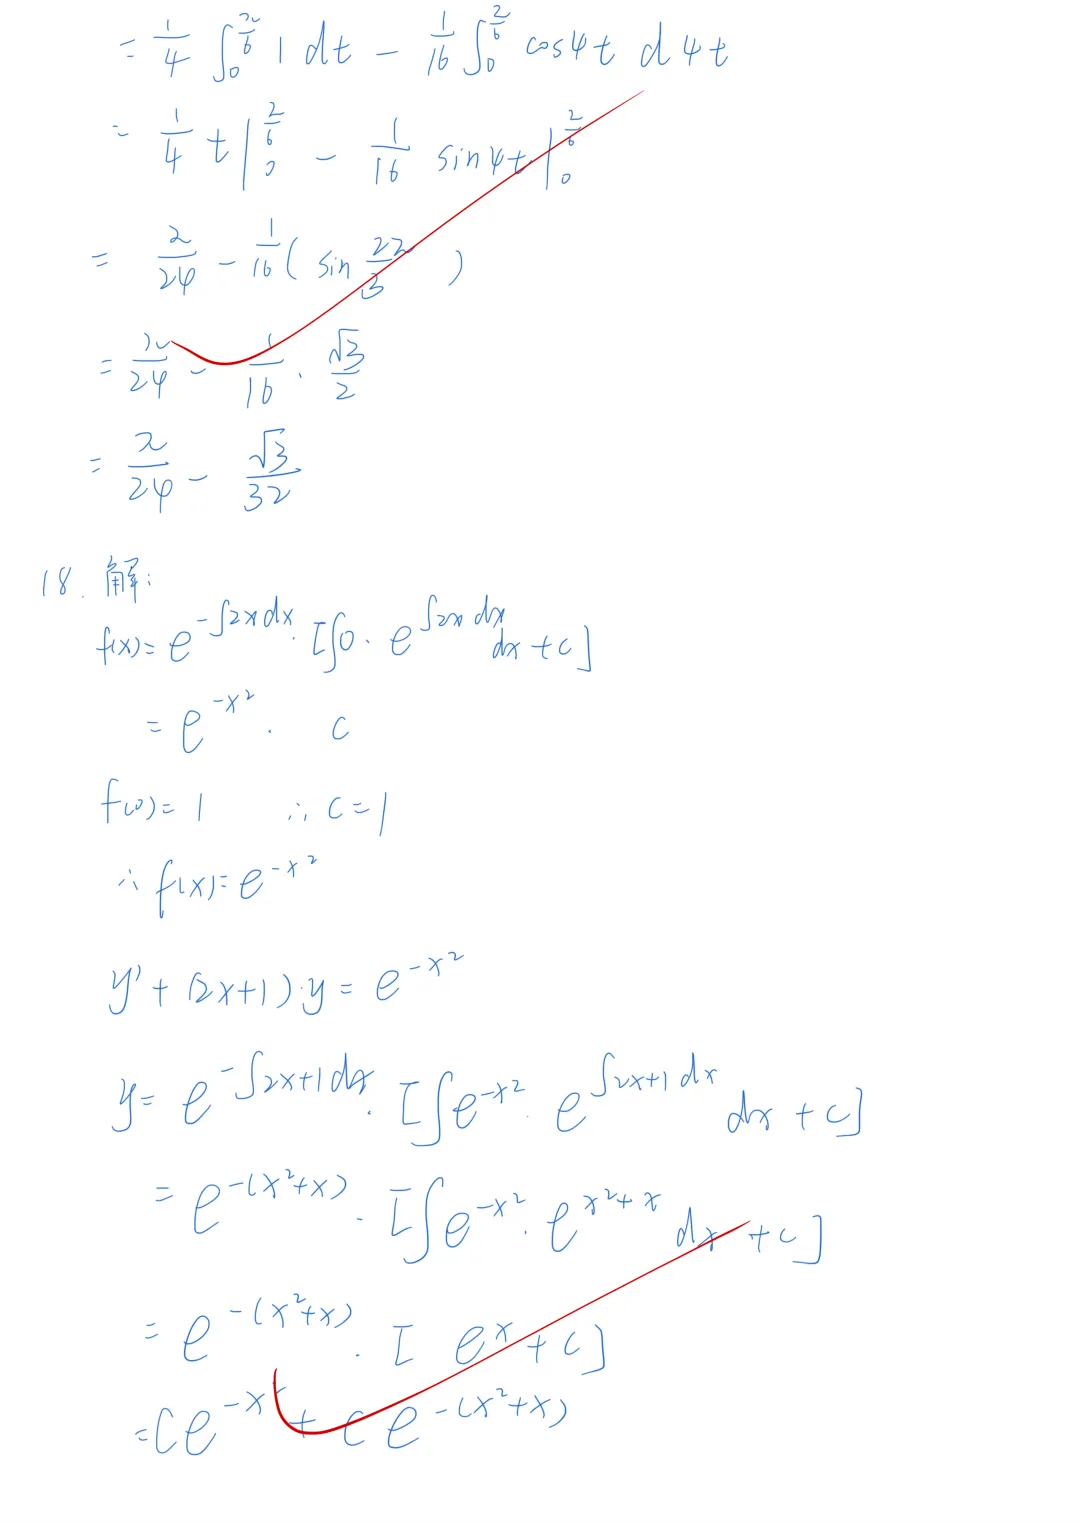 = 1/4 ∫₀^(π/6) 1 dt - 1/16 ∫₀^(π/6) cos4t d4t
= 1/4 t|₀^(π/6) - 1/16 sin4t|₀^(π/6)
= π/24 - 1/16 ( sin 2π/3 )
= π/24 - 1/16 · √3/2
= π/24 - √3/32
18. 解:
f(x)= e^(-∫2xdx) · [∫0 · e^(∫2x dx) dx + c]
= e^(-x²) · c
f(0)= 1 ∴ c=1
∴ f(x)= e^(-x²)
y' + (2x+1)·y = e^(-x²)
y= e^(-∫2x+1dx) · [∫e^(-x²) · e^(∫2x+1 dx) dx + c]
= e^(-(x²+x)) · [∫e^(-x²) · e^(x²+x) dx + c]
= e^(-(x²+x)) · [ e^x + c]
= Ce^(-x²) + c e^(-(x²+x))